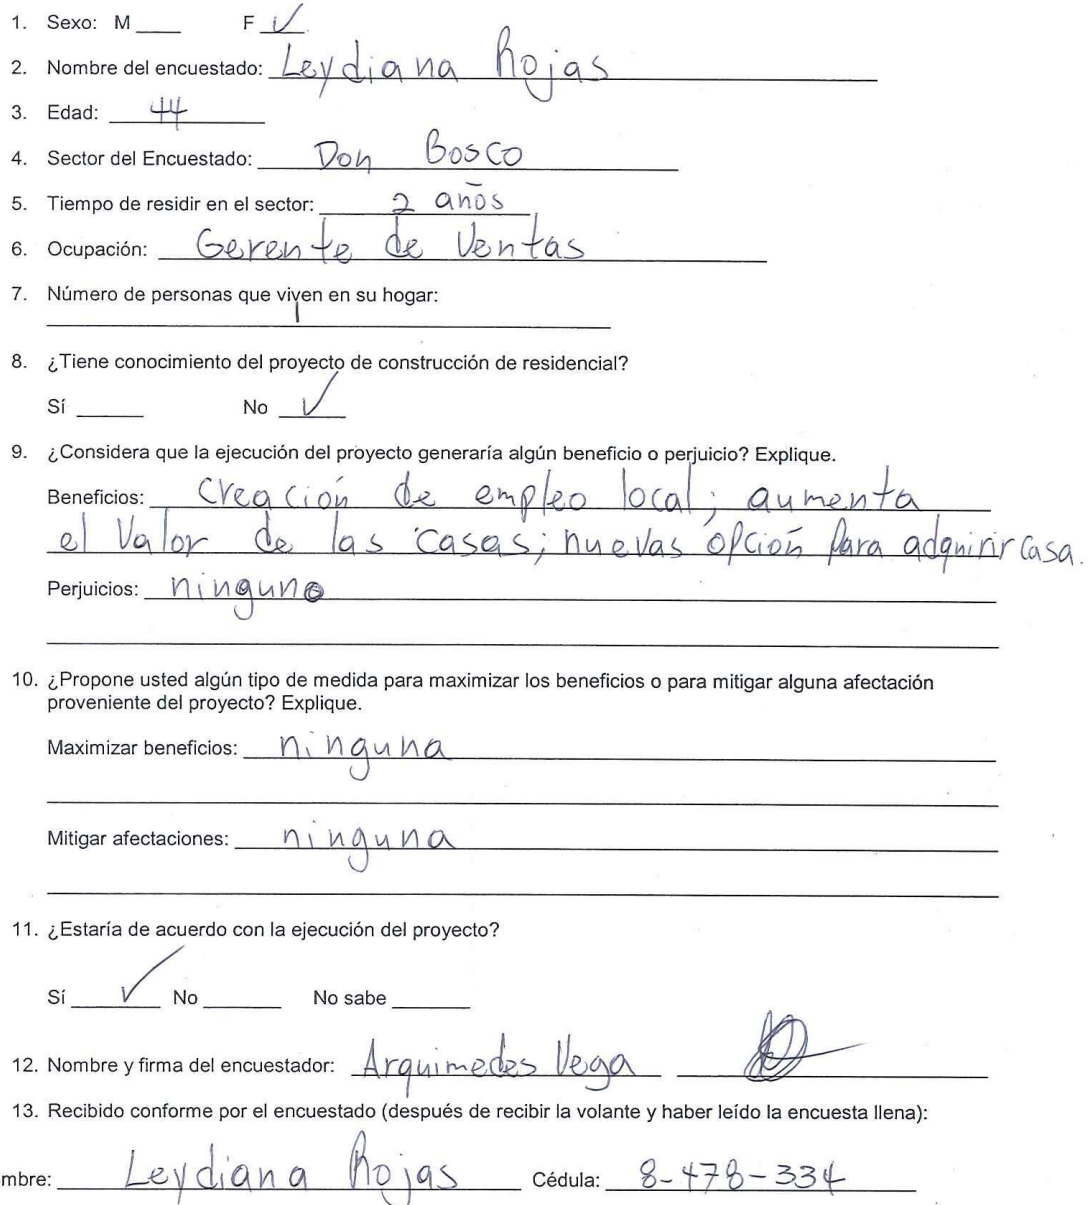 1. Sexo: M ____ F ✓
2. Nombre del encuestado: Leydiana Rojas
3. Edad: 44
4. Sector del Encuestado: Don Bosco
5. Tiempo de residir en el sector: 2 años
6. Ocupación: Gerente de Ventas
7. Número de personas que viven en su hogar:
1
8. ¿Tiene conocimiento del proyecto de construcción de residencial?
Sí ____ No ✓
9. ¿Considera que la ejecución del proyecto generaría algún beneficio o perjuicio? Explique.
Beneficios: Creación de empleo local; aumenta
el Valor de las casas; nuevas opción para adquirir casa.
Perjuicios: ninguno
10. ¿Propone usted algún tipo de medida para maximizar los beneficios o para mitigar alguna afectación
proveniente del proyecto? Explique.
Maximizar beneficios: ninguna
Mitigar afectaciones: ninguna
11. ¿Estaría de acuerdo con la ejecución del proyecto?
Sí ✓ No ____ No sabe ____
12. Nombre y firma del encuestador: Arquimedes Vega
13. Recibido conforme por el encuestado (después de recibir la volante y haber leído la encuesta llena):
mbre: Leydiana Rojas Cédula: 8-478-334